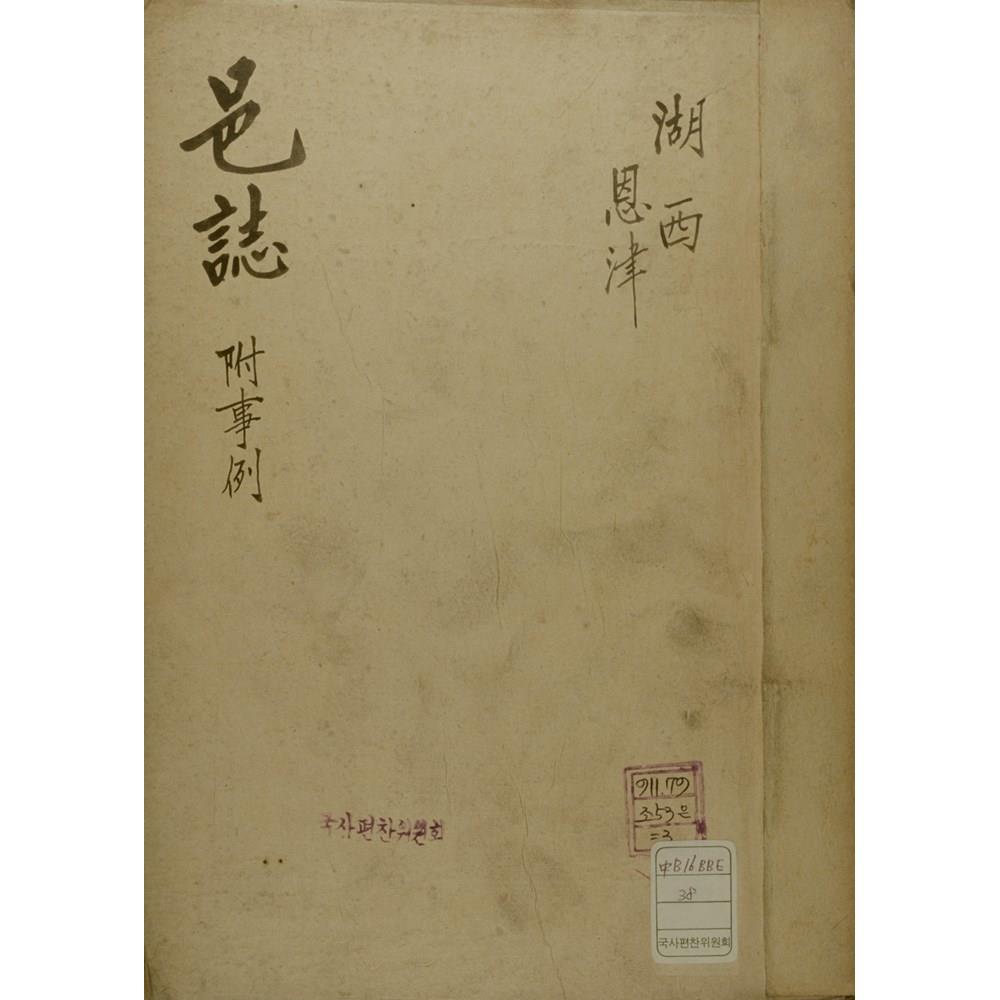 湖西
恩津
邑誌
附事例
국사편찬위원회
911.79
조53은
=3
中B16BBE
38
국사편찬위원회